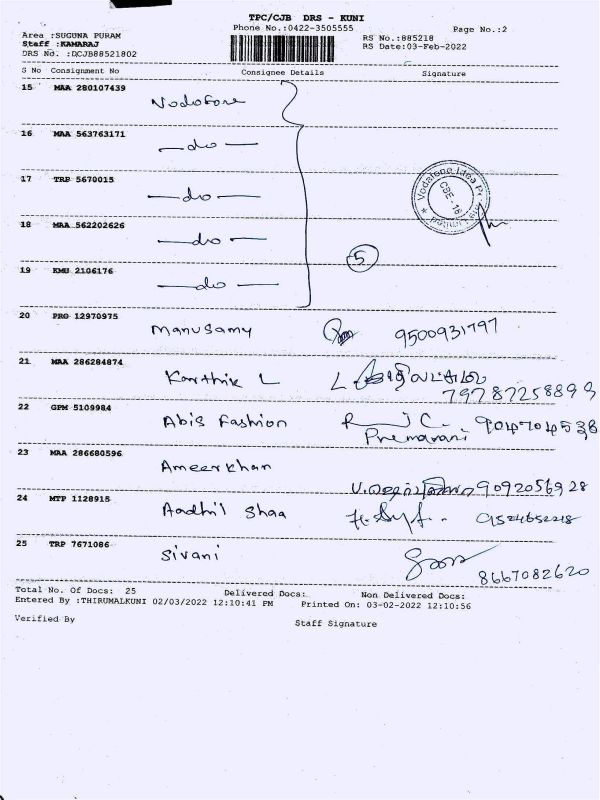 TPC/CJB DRS - KUNI
Phone No.:0422-3505555
Page No.:2
Area :SUGUNA PURAM
RS No.:885218
Staff :KAMARAJ
RS Date:03-Feb-2022
DRS No. :DCJB88521802
S No Consignment No Consignee Details Signature
15 MAA 280107439
Vodafone
16 MAA 563763171
—do—
17 TRP 5670015
—do—
18 MAA 562202626
—do—
19 KMU 2106176
—do—
5
Vodafone Idea
CBE-18
20 PRO 12970975
Manusamy 9500931797
21 MAA 286284874
Karthik L
79787258899
22 GPM 5109984
Abis Fashion
Premarani 904704538
23 MAA 286680596
Ameerkhan 9092056928
24 MTP 1128915
Aadhil Shaa 9524652218
25 TRP 7671086
Sivani
8667082620
Total No. Of Docs: 25 Delivered Docs: Non Delivered Docs:
Entered By :THIRUMALKUNI 02/03/2022 12:10:41 PM Printed On: 03-02-2022 12:10:56
Verified By Staff Signature